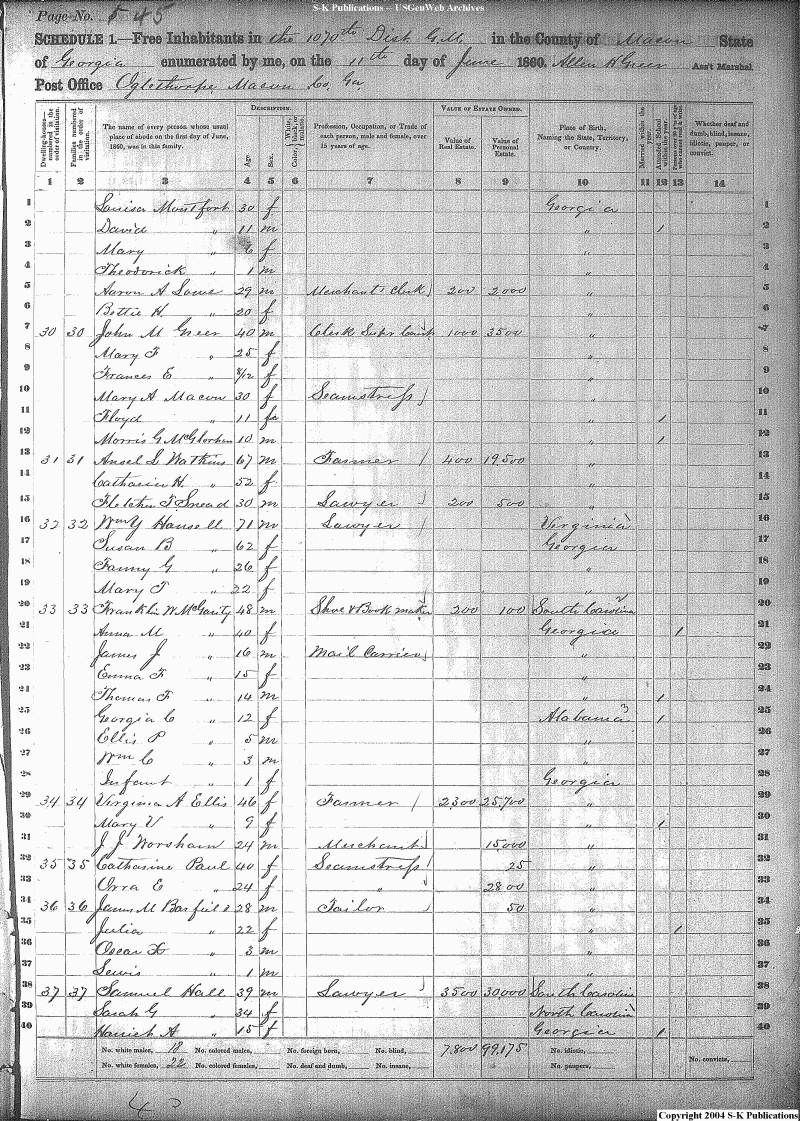 S-K Publications – USGenWeb Archives
Page No. 45
SCHEDULE 1.—Free Inhabitants in the 1070th Dist G.M. in the County of Macon State
of Georgia enumerated by me, on the 11th day of June 1860. Allen H Greer Ass't Marshal.
Post Office Oglethorpe Macon Co. Ga.
Dwelling-houses—numbered in the order of visitation.
Families numbered in the order of visitation.
The name of every person whose usual place of abode on the first day of June, 1860, was in this family.
DESCRIPTION.
Age.
Sex.
Color, White, black, or mulatto.
Profession, Occupation, or Trade of each person, male and female, over 15 years of age.
VALUE OF ESTATE OWNED.
Value of Real Estate.
Value of Personal Estate.
Place of Birth, Naming the State, Territory, or Country.
Married within the year.
Attended School within the year.
Persons over 20 y'rs of age who cannot read & write.
Whether deaf and dumb, blind, insane, idiotic, pauper, or convict.
1 2 3 4 5 6 7 8 9 10 11 12 13 14
1 Louisa Montfort 30 f Georgia 1
2 David " 11 m " / 2
3 Mary " f " 3
4 Theodorick " 1 m " 4
5 Aaron A Lowe 29 m Merchants Clerk 200 2,000 " 5
6 Bettie H. " 20 f " 6
7 30 30 John M Greer 40 m Clerk Super Court 1000 3500 " 7
8 Mary F " 25 f " 8
9 Frances E " 8/12 f " 9
10 Mary A Macon 30 f Seamstress " 10
11 Floyd " 11 " / 11
12 Morris G 10 m " / 12
13 31 31 Ansel L Watkins 67 m Farmer 400 19,500 " 13
14 Catharin H. " 52 f " 14
15 Fletcher T Snead 30 m Lawyer 200 500 " 15
16 32 32 Wm Y Hansell 71 m Lawyer Virginia 16
17 Susan B " 62 f Georgia 17
18 Fanny G " 26 f " 18
19 Mary T " 22 f " 19
20 33 33 Franklin W McGarity 48 m Shoe & Book maker 200 100 South Carolina 20
21 Anna M " 40 f Georgia / 21
22 James J " 16 m Mail Carrier " 22
23 Emma F " 15 f " 23
24 Thomas F " 14 m " / 24
25 Georgia C " 12 f Alabama 3 / 25
26 Ellis P " 5 m " 26
27 Wm C " 3 m " 27
28 Infant " 1 f Georgia 28
29 34 34 Virginia A Ellis 46 f Farmer 2300 25,700 " 29
30 Mary V " 9 f " / 30
31 J J Worsham 24 m Merchant 15,000 " 31
32 35 35 Catharine Paul 40 f Seamstress 25 " 32
33 Orra E " 24 f " 2800 " 33
34 36 36 James M Barfield 28 m Tailor 50 " 34
35 Julia " 22 f " / 35
36 Oscar " 3 m " 36
37 Lewis " 1 m " 37
38 37 37 Samuel Hall 39 m Lawyer 3500 30,000 South Carolina 38
39 Sarah G " 34 f North Carolina 39
40 A " 15 f Georgia / 40
No. white males, 18 No. colored males, No. foreign born, No. blind, 7,800 99,175 No. idiotic,
No. white females, 22 No. colored females, No. deaf and dumb, No. insane, No. paupers, No. convicts,
Copyright 2004 S-K Publications